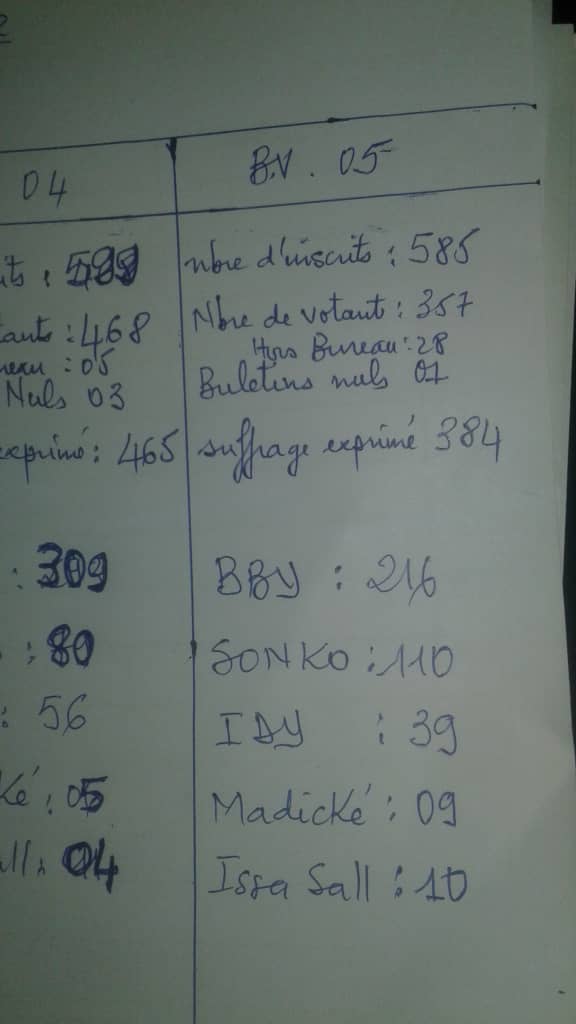 04
: 
tants : 468
reau : 05
Nuls 03
exprimé : 465
: 309
: 80
: 56
ké : 05
all : 04
B.V. 05
nbre d'inscrits : 585
Nbre de votant : 357
Hors Bureau : 28
Buletins nuls 01
suffrage exprimé 384
BBY : 216
SONKO : 110
IDY : 39
Madické : 09
Issa Sall : 10